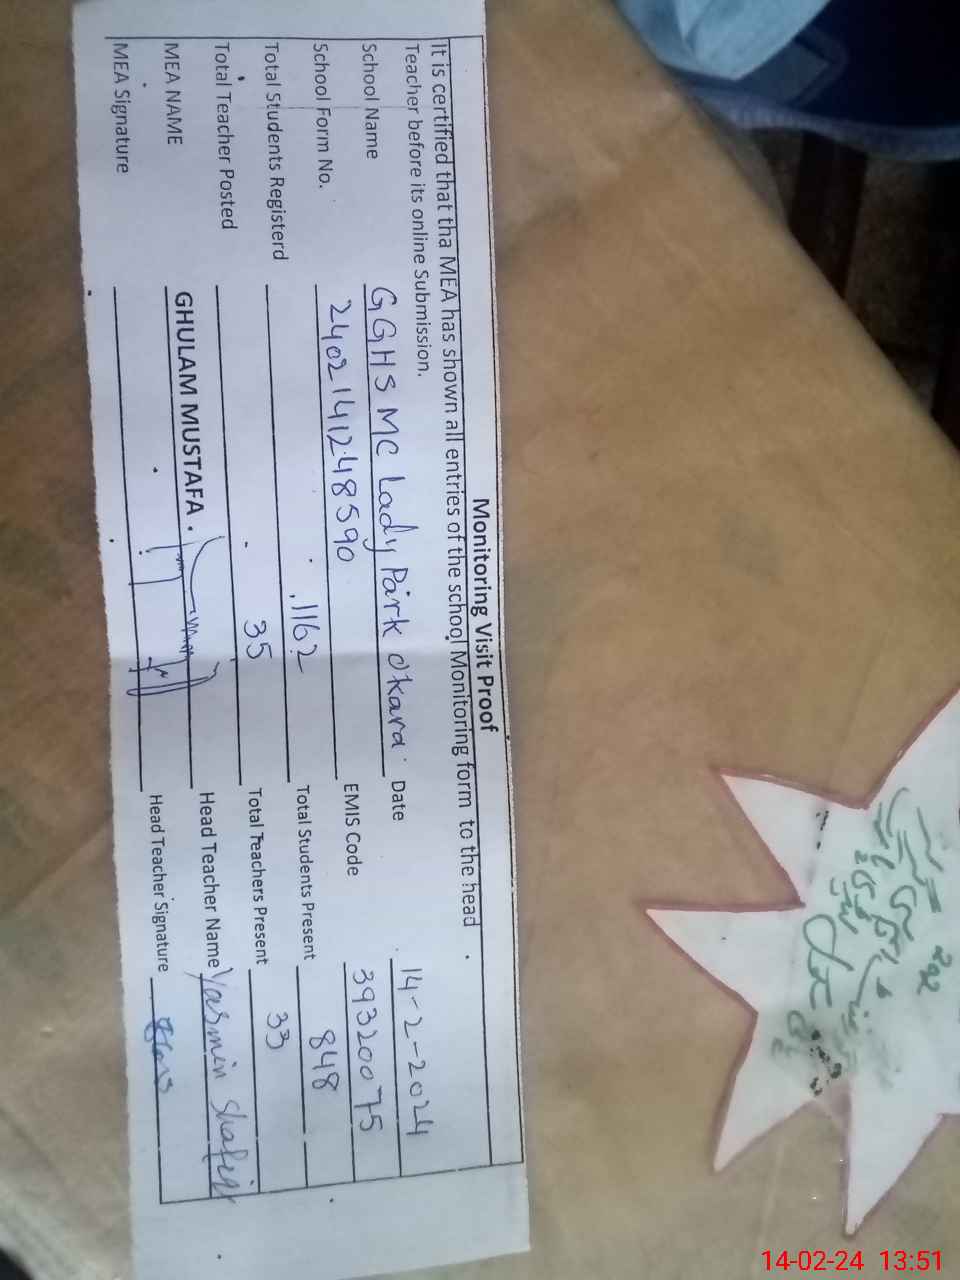 Monitoring Visit Proof
It is certified that tha MEA has shown all entries of the school Monitoring form to the head
Teacher before its online Submission.
School Name GGHS MC Lady Park Okara. Date 14-2-2024
School Form No. 2402141248590 EMIS Code 39320075
Total Students Registerd 1162 Total Students Present 848
Total Teacher Posted 35 Total Teachers Present 33
MEA NAME GHULAM MUSTAFA. Head Teacher Name Yasmin Shafiq
MEA Signature Head Teacher Signature
14-02-24 13:51